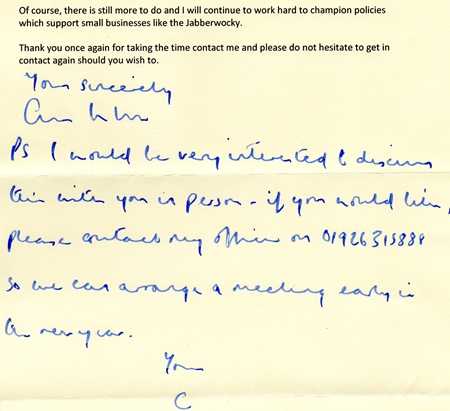 Of course, there is still more to do and I will continue to work hard to champion policies
which support small businesses like the Jabberwocky.
Thank you once again for taking the time contact me and please do not hesitate to get in
contact again should you wish to.
Yours sincerely
PS I would be very interested to discuss
this with you in person - if you would like,
please contact my office on 01926315888
so we can arrange a meeting early in
the new year.
Yours
C